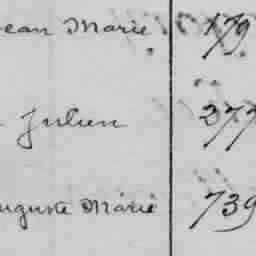 ean Marie 179
Julien 277
uguste Marie 739